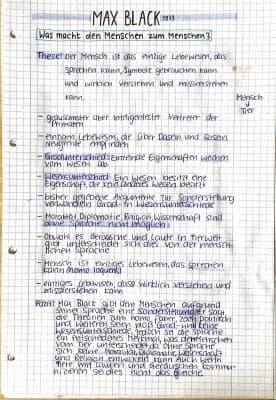 MAX BLACK 1973
Was macht den Menschen zum Menschen?
These: Der Mensch ist das einzige Lebewesen, das
sprechen kann, Symbole gebrauchen kann
und wirklich verstehen und missverstehen
kann.
Mensch
Tier
- grausamster aber intelligentester Vertreter der
Primaten
- einziges Lebewesen, die über Dasein und Sosein
Neugierde empfinden
- Gradunterschied: Eintretende Eigenschaften weichen
vom Wesen ab.
- Wesensunterschied: Ein Wesen besitzt eine
Eigenschaft, die kein anderes Wesen besitzt
- bisher genannte Argumente zur Sonderstellung
Grad- in Wesensunterschiede
- Moralität, Diplomatie, Religion, Wissenschaft sind
ohne Sprache nicht möglich
- Obwohl es Geräusche und Laute in Tierwelt
gibt unterscheidet sich dies von der mensch-
lichen Sprache
- Mensch ist einziges Lebewesen, das sprechen
kann (homo loquens)
- einziges Lebewesen, dass wirklich verstehen und
missverstehen kann
Fazit: Max Black gibt dem Menschen aufgrund
seiner Sprache eine Sonderstellung. Er sagt
die Theorien zum homo faber, zoon politikon
und weiteren seien bloß Grad- und keine
Wesensunterschiede, jedoch sei die Sprache
ein entscheidenes Merkmal, was den Menschen
vom Tier unterscheidet, da ohne Sprache
sich keine Moralität, Diplomatie, Wissenschaft
und Religion entwickeln kann. Auch wenn
Tiere mit Lauten und Geräuschen kommu-
nizieren sei dies nicht das gleiche.